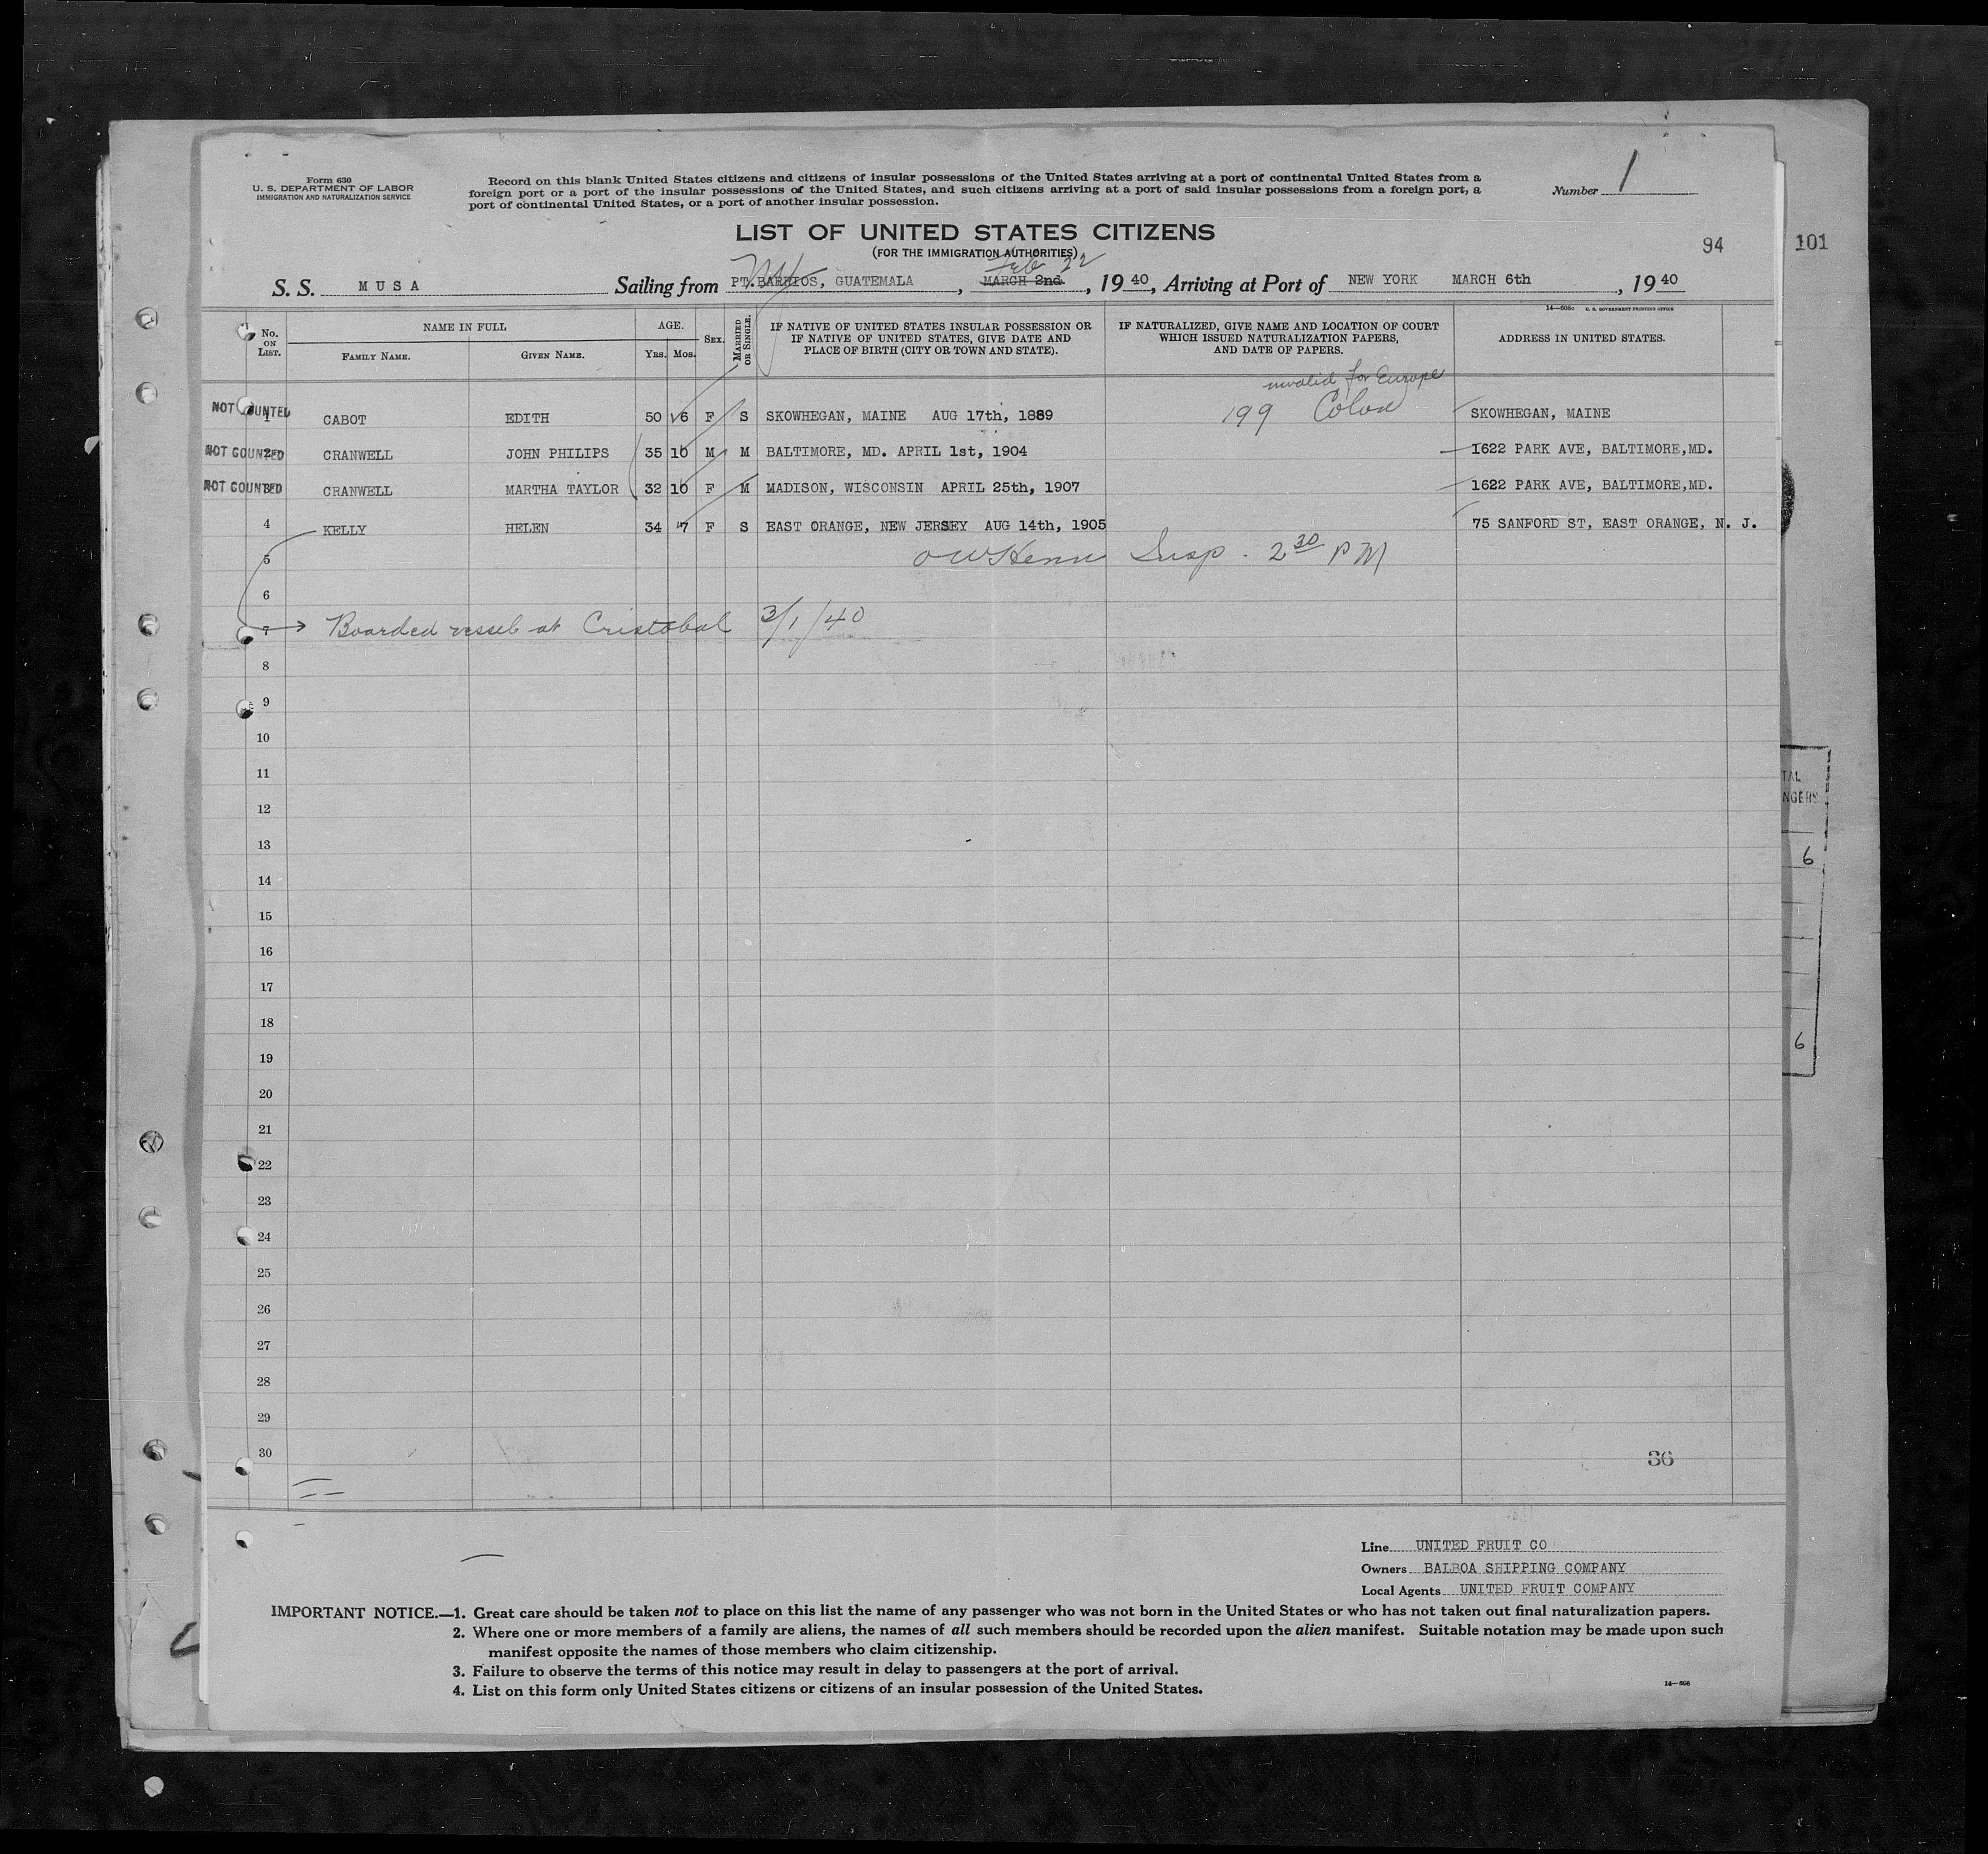 Form 630
U. S. DEPARTMENT OF LABOR
IMMIGRATION AND NATURALIZATION SERVICE
Record on this blank United States citizens and citizens of insular possessions of the United States arriving at a port of continental United States from a
foreign port or a port of the insular possessions of the United States, and such citizens arriving at a port of said insular possessions from a foreign port, a
port of continental United States, or a port of another insular possession.
Number 1
LIST OF UNITED STATES CITIZENS
(FOR THE IMMIGRATION AUTHORITIES)
94
101
Feb 22
S. S. MUSA Sailing from PT. BARRIOS, GUATEMALA, MARCH 2nd, 1940, Arriving at Port of NEW YORK MARCH 6th, 1940
14—608c U. S. GOVERNMENT PRINTING OFFICE
No. ON LIST.
NAME IN FULL
FAMILY NAME.
GIVEN NAME.
AGE.
YRS.
MOS.
SEX.
MARRIED OR SINGLE.
IF NATIVE OF UNITED STATES INSULAR POSSESSION OR
IF NATIVE OF UNITED STATES, GIVE DATE AND
PLACE OF BIRTH (CITY OR TOWN AND STATE).
IF NATURALIZED, GIVE NAME AND LOCATION OF COURT
WHICH ISSUED NATURALIZATION PAPERS,
AND DATE OF PAPERS.
ADDRESS IN UNITED STATES.
invalid for Europe
NOT COUNTED 1 CABOT EDITH 50 6 F S SKOWHEGAN, MAINE AUG 17th, 1889 199 Colon SKOWHEGAN, MAINE
NOT COUNTED 2 CRANWELL JOHN PHILIPS 35 10 M M BALTIMORE, MD. APRIL 1st, 1904 1622 PARK AVE, BALTIMORE,MD.
NOT COUNTED 3 CRANWELL MARTHA TAYLOR 32 10 F M MADISON, WISCONSIN APRIL 25th, 1907 1622 PARK AVE, BALTIMORE,MD.
4 KELLY HELEN 34 7 F S EAST ORANGE, NEW JERSEY AUG 14th, 1905 75 SANFORD ST, EAST ORANGE, N. J.
5 Insp. 2 30 PM
6
7 Boarded vessel at Cristobal 3/1/40
8
9
10
11
TAL
NGERS
12
13
6
14
15
16
17
18
6
19
20
21
22
23
24
25
26
27
28
29
30
36
Line UNITED FRUIT CO
Owners BALBOA SHIPPING COMPANY
Local Agents UNITED FRUIT COMPANY
IMPORTANT NOTICE.—1. Great care should be taken not to place on this list the name of any passenger who was not born in the United States or who has not taken out final naturalization papers.
2. Where one or more members of a family are aliens, the names of all such members should be recorded upon the alien manifest. Suitable notation may be made upon such
manifest opposite the names of those members who claim citizenship.
3. Failure to observe the terms of this notice may result in delay to passengers at the port of arrival.
4. List on this form only United States citizens or citizens of an insular possession of the United States.
14—608